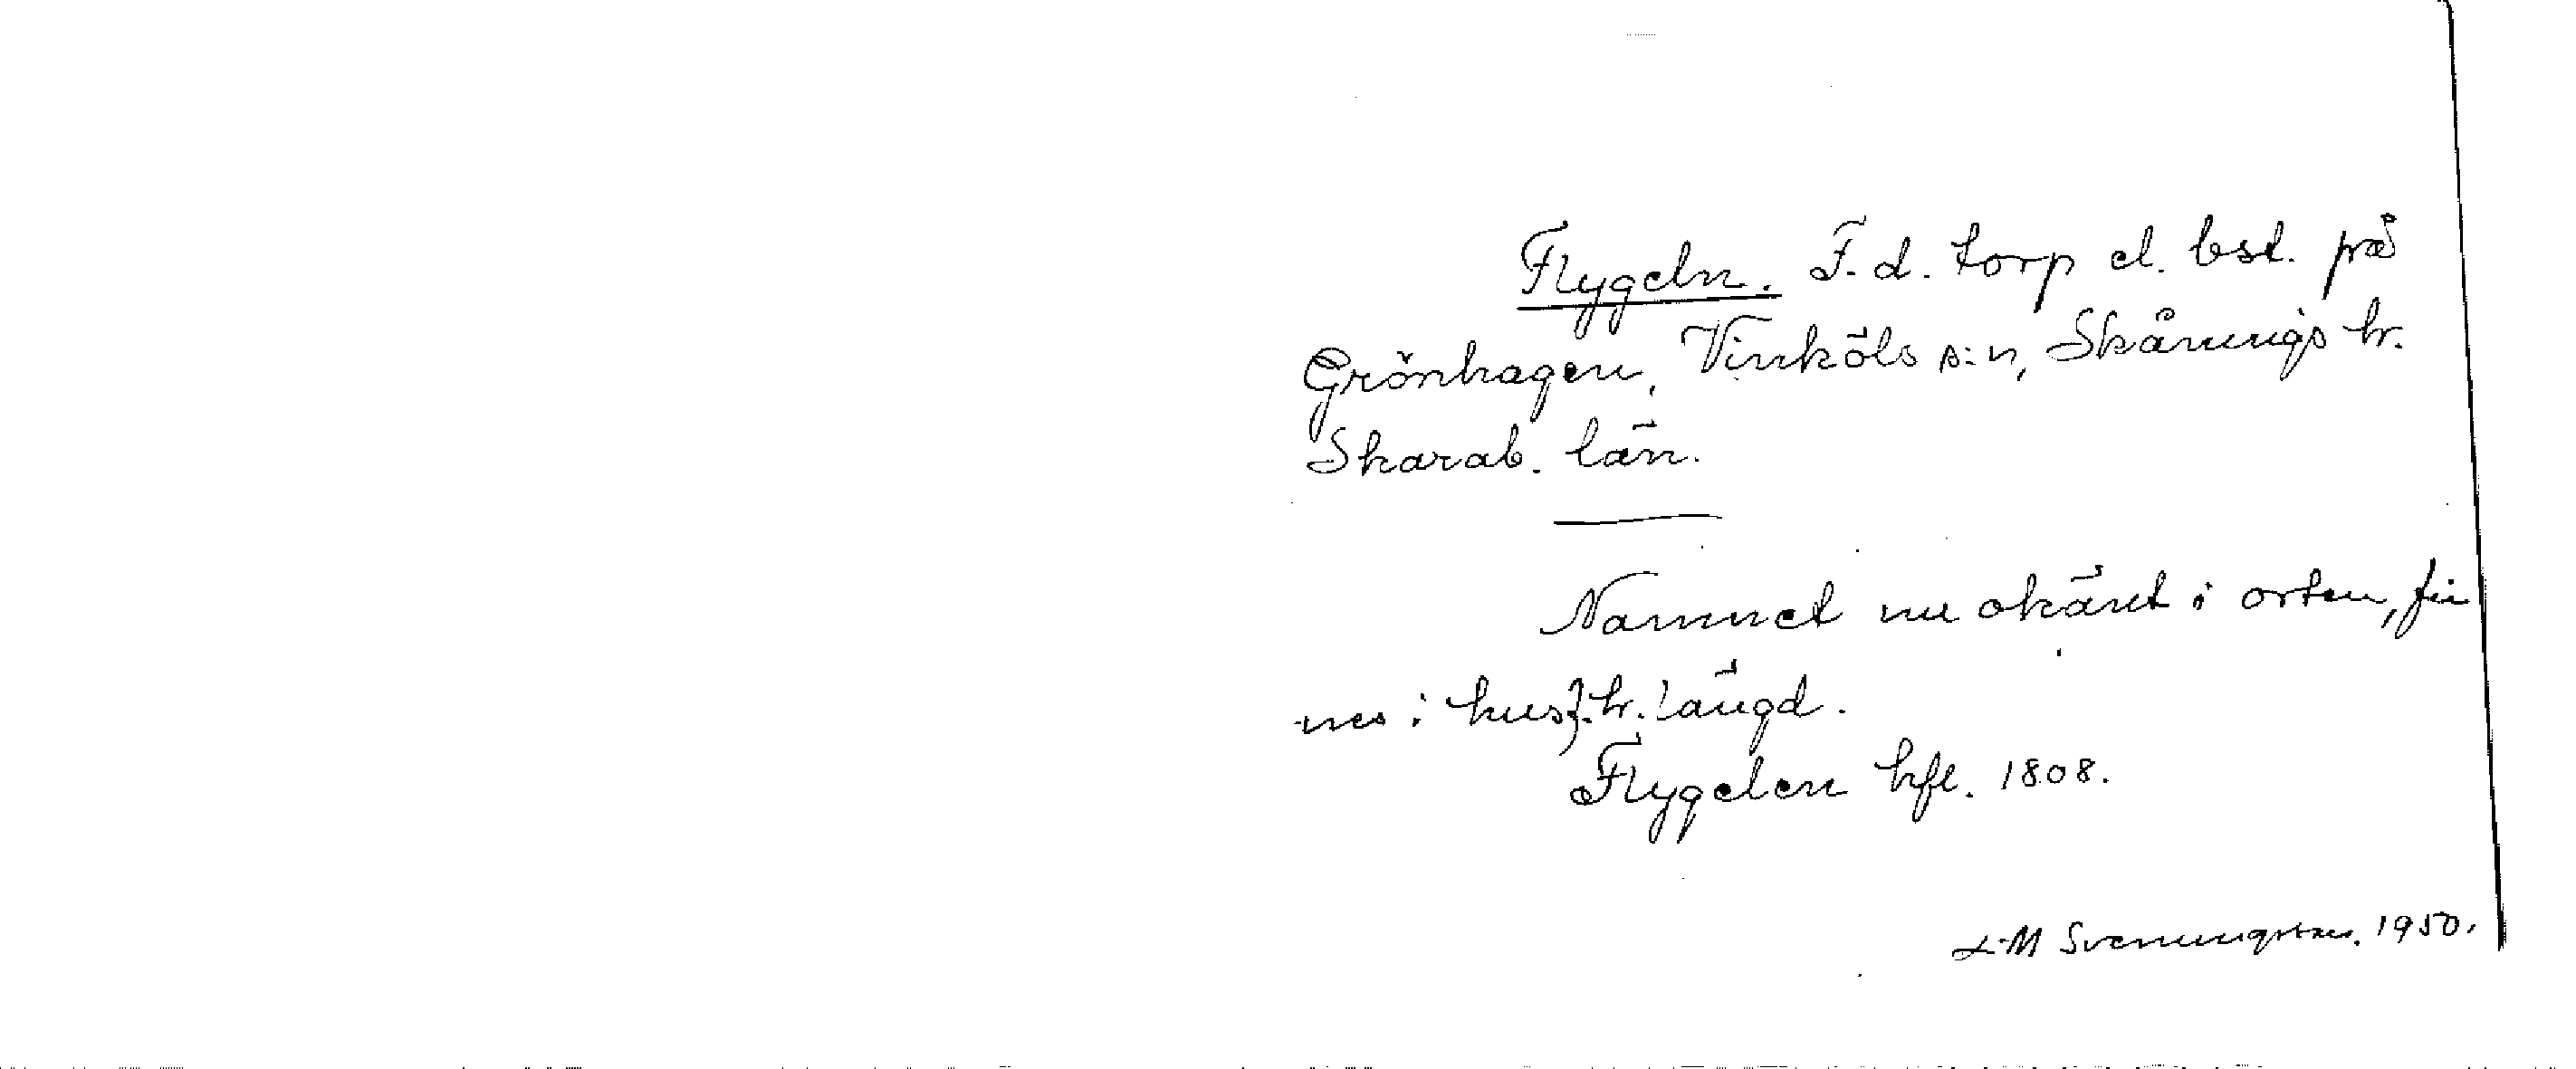 Flygeln. F.d. torp el. bst. på
Grönhagen, Vinköls s:n, Skånings hr.
Skarab. län.
Namnet nu okänt i orten, fin
nes i husf.hr.längd.
Flygelen hfl. 1808.
L-M Svenungsson. 1950.